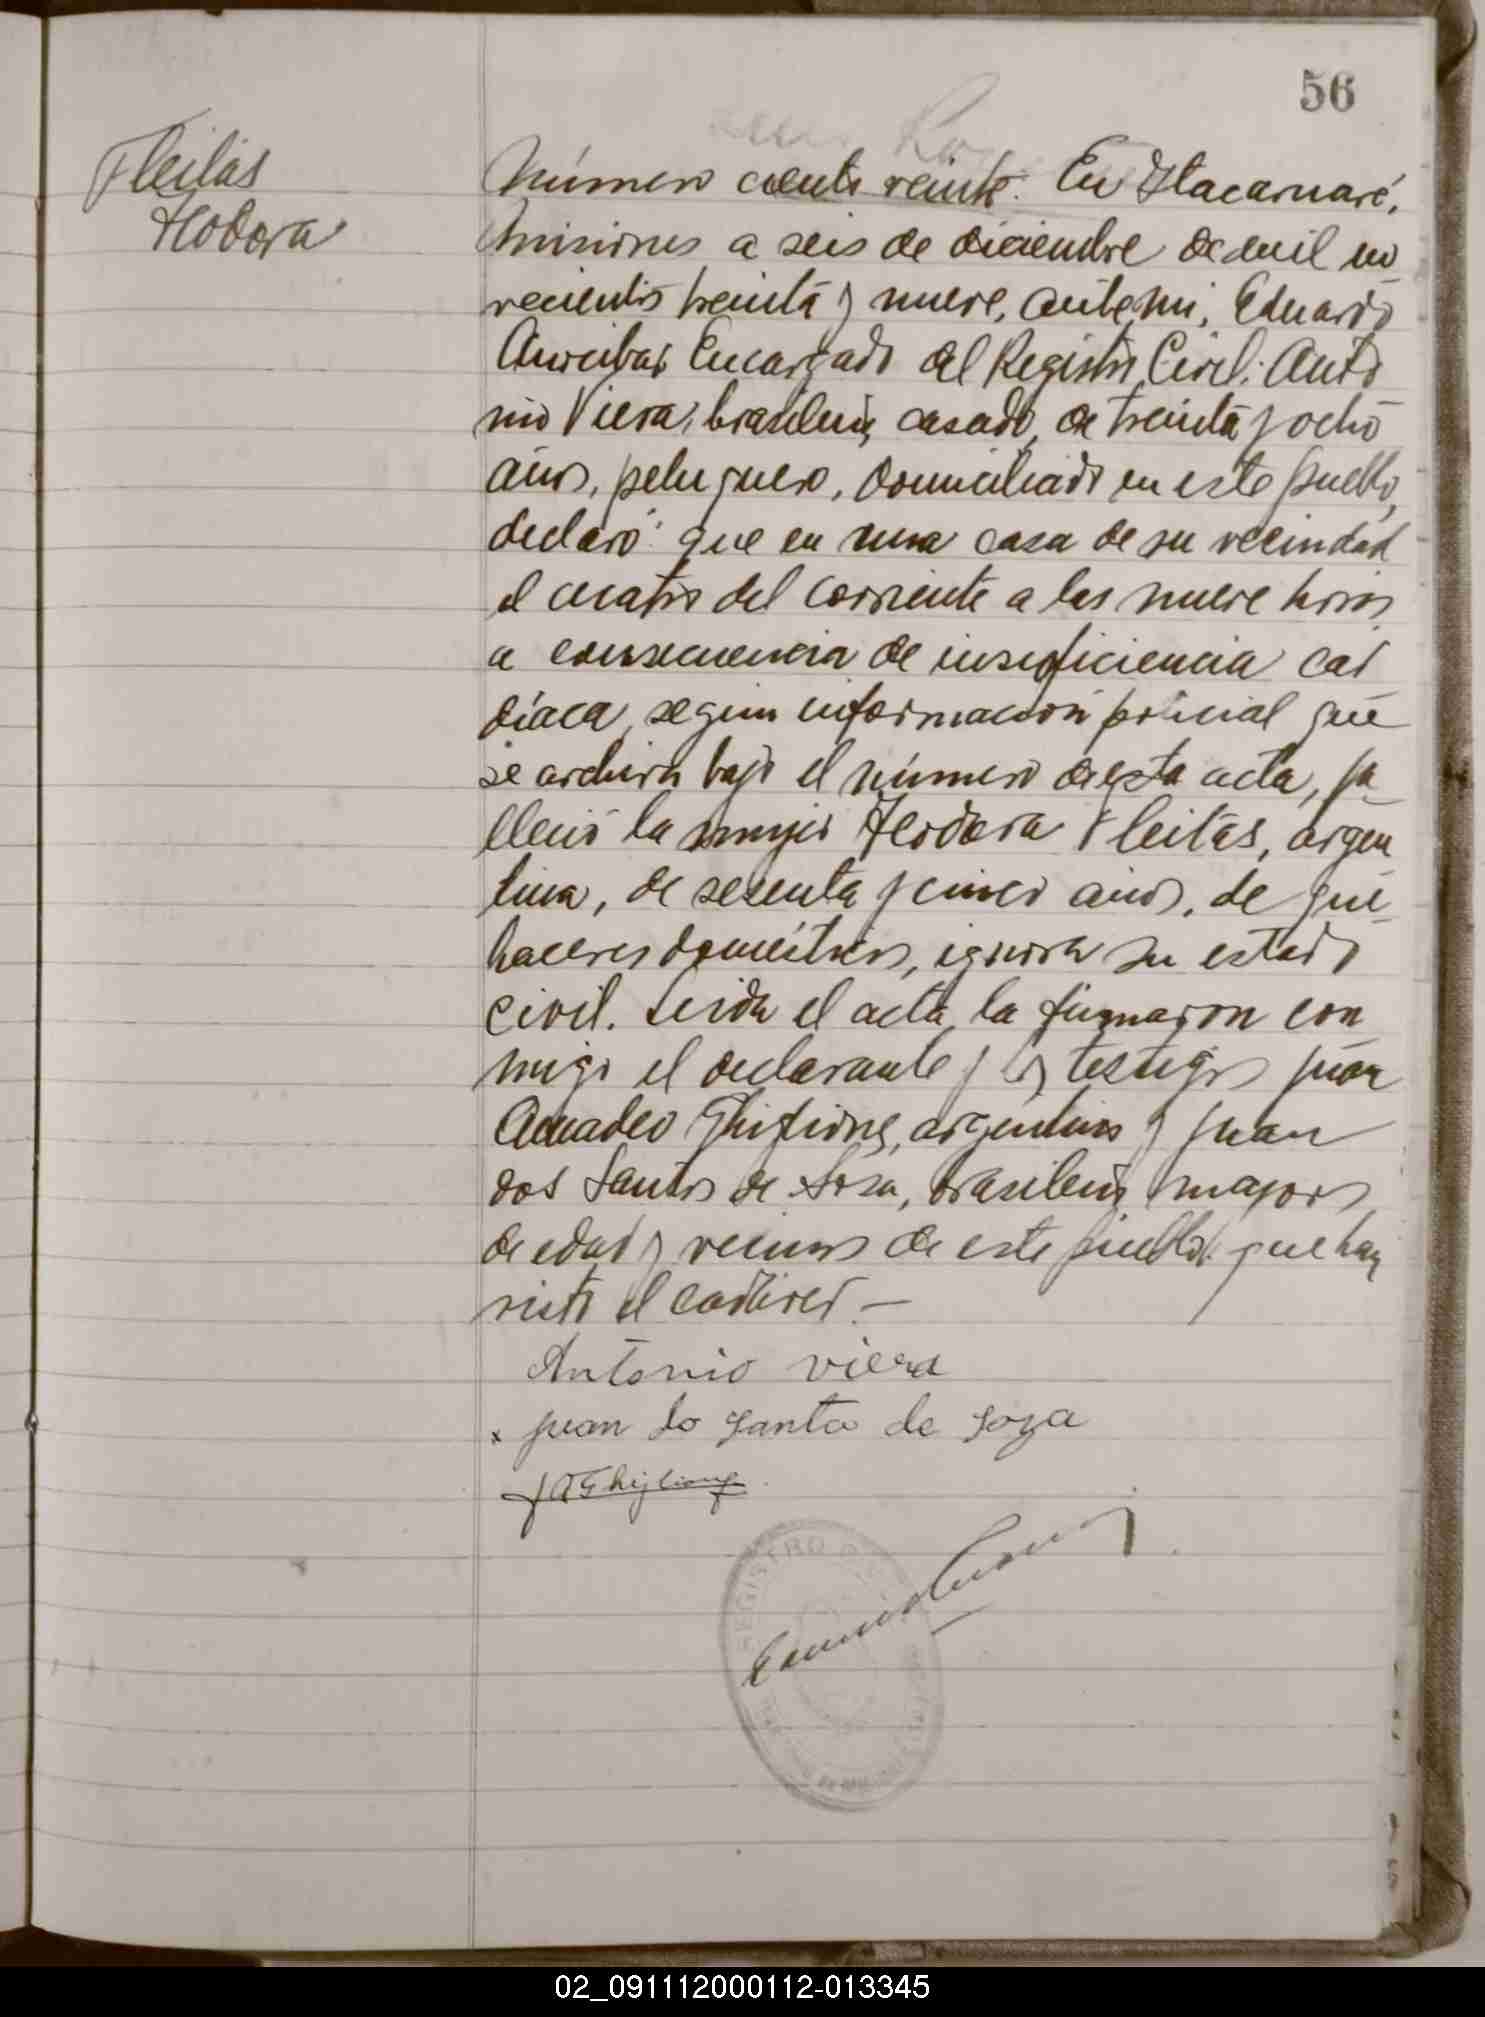 56
Fleitas
Teodora
Número ciento veinte. En Itacaruaré,
Misiones a seis de diciembre de mil no
vecientos treinta y nueve, ante mi, Eduardo
Encargado del Registro Civil: Anto
nio Viera, brasileño, casado, de treinta y ocho
años, peluquero, domiciliado en este pueblo,
declaró: que en una casa de su vecindad
el cuatro del corriente a las nueve horas
a consecuencia de insuficiencia car
díaca, segun informacion policial que
se archiva bajo el número de esta acta, fa-
lleció la mujer Teodora Fleitas, argen
tina, de sesenta y cinco años, de que-
haceres domésticos, ignora su estado
civil. Leida el acta, la firmaron con
migo el declarante y los testigos Juan
Amadeo Ghiglione, argentino y Juan
dos Santos de Sosa, brasileño, mayores
de edad y vecinos de este pueblo que han
visto el cadáver.—
Antonio viera
x juan do santo de soza
JAGhiglione
REGISTRO
02_091112000112-013345